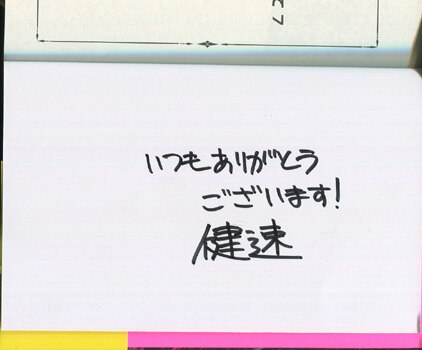 いつもありがとう
ございます!
健速